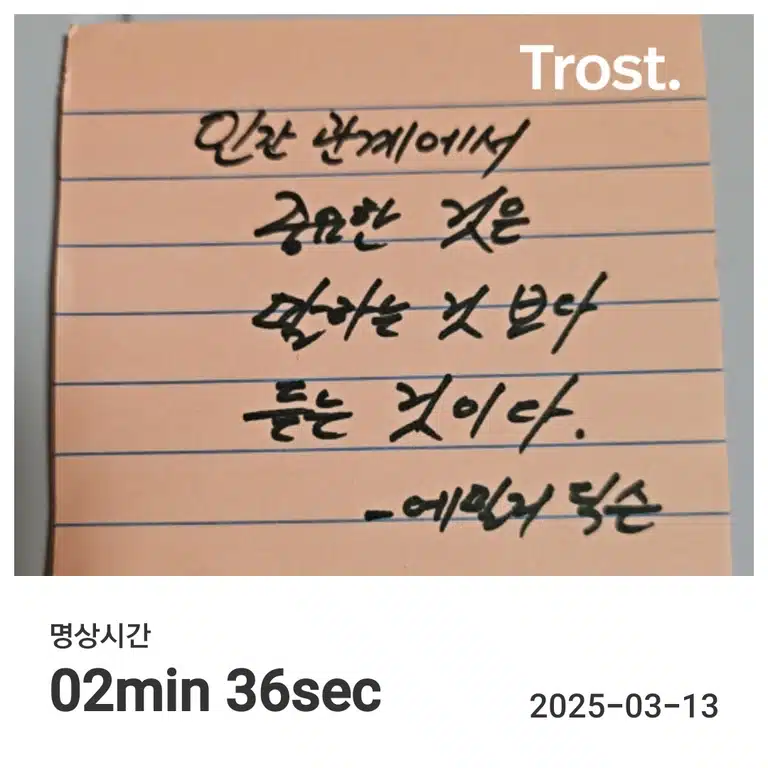 Trost.
인간 관계에서
중요한 것은
말하는 것 보다
듣는 것이다.
-에밀리 딕슨
명상시간
02min 36sec
2025-03-13